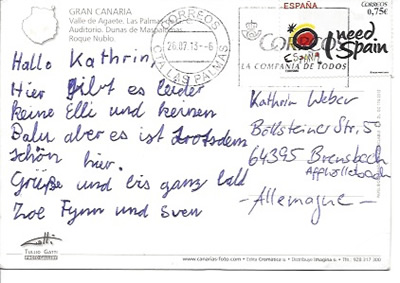 GRAN CANARIA
Valle de Agaete. Las Palmas
Auditorio. Dunas de Maspalomas
Roque Nublo.
CORREOS
26.07.13
CTA LAS PALMAS
CORREOS
LA COMPAÑIA DE TODOS
ESPAÑA
CORREOS
0,75€
I need
Spain
Hallo Kathrin,
Hier gibt es leider
keine Elli und keinen
Balu aber es ist trotzdem
schön hier.
Grüße und bis ganz bald
Zoe Fynn und Sven
Kathrin Weber
Böllsteiner Str. 50
64395 Brensbach
Affhöllerbach
- Allemagne -
Tullio Gatti
PHOTO GALLERY
www.canarias-foto.com